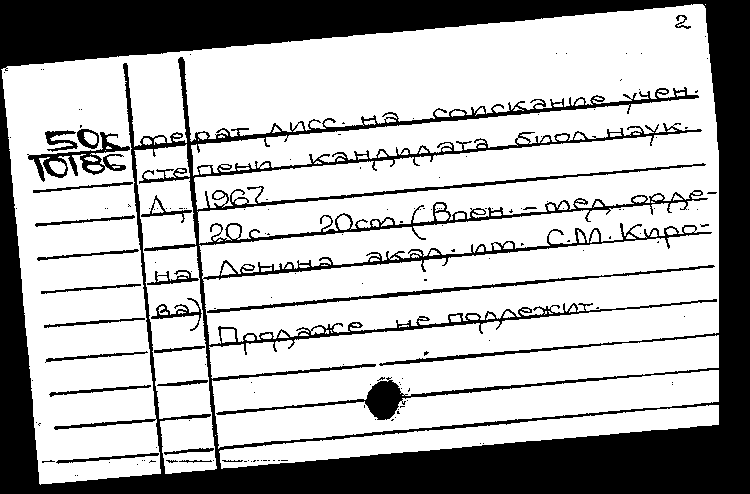 2
50К ферат дисс. на соискание учен.
Т0186 степени кандидата биол. наук.
Л., 1967.
20 с. 20 см. (Воен.-мед. орде-
на Ленина акад. им. С.М. Киро-
ва)
Продаже не подлежит.